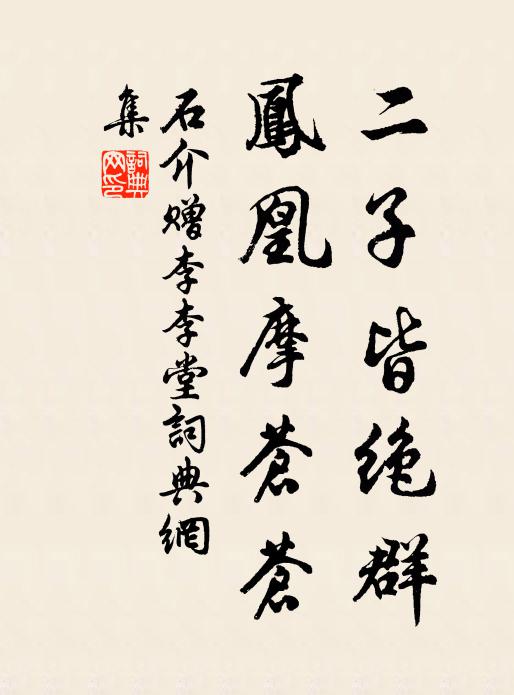 二子皆絶群
鳳凰摩蒼蒼
石介贈李李堂詞典網
集
詞典
网印